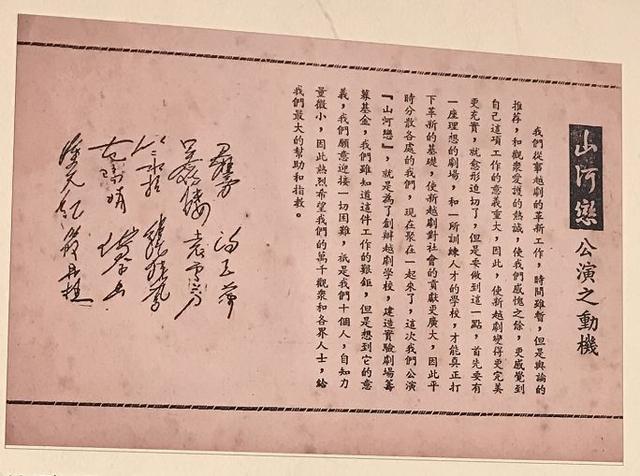 山河戀 公演之動機
我們從事越劇的革新工作，時間雖暫，但是輿論的
推荐，和觀衆愛護的熱誠，使我們感愧之餘，更感覺到
自己這項工作的意義重大，因此，使新越劇變得更完美
更充實，就愈形迫切了，但是要做到這一點，首先要有
一座理想的劇場，和一所訓練人才的學校，才能真正打
下革新的基礎，使新越劇對社會的貢獻更廣大，因此平
時分散各處的我們，現在聚在一起來了，這次我們公演
『山河戀』，就是為了創辦越劇學校，建造實驗劇場籌
募基金，我們雖知道這件工作的艱鉅，但是想到它的意
義，我們願意迎接一切困難，祇是我們十個人，自知力
量微小，因此熱烈希望我們的萬千觀衆和各界人士，給
我們最大的幫助和指教。
袁雪芬
筱丹桂